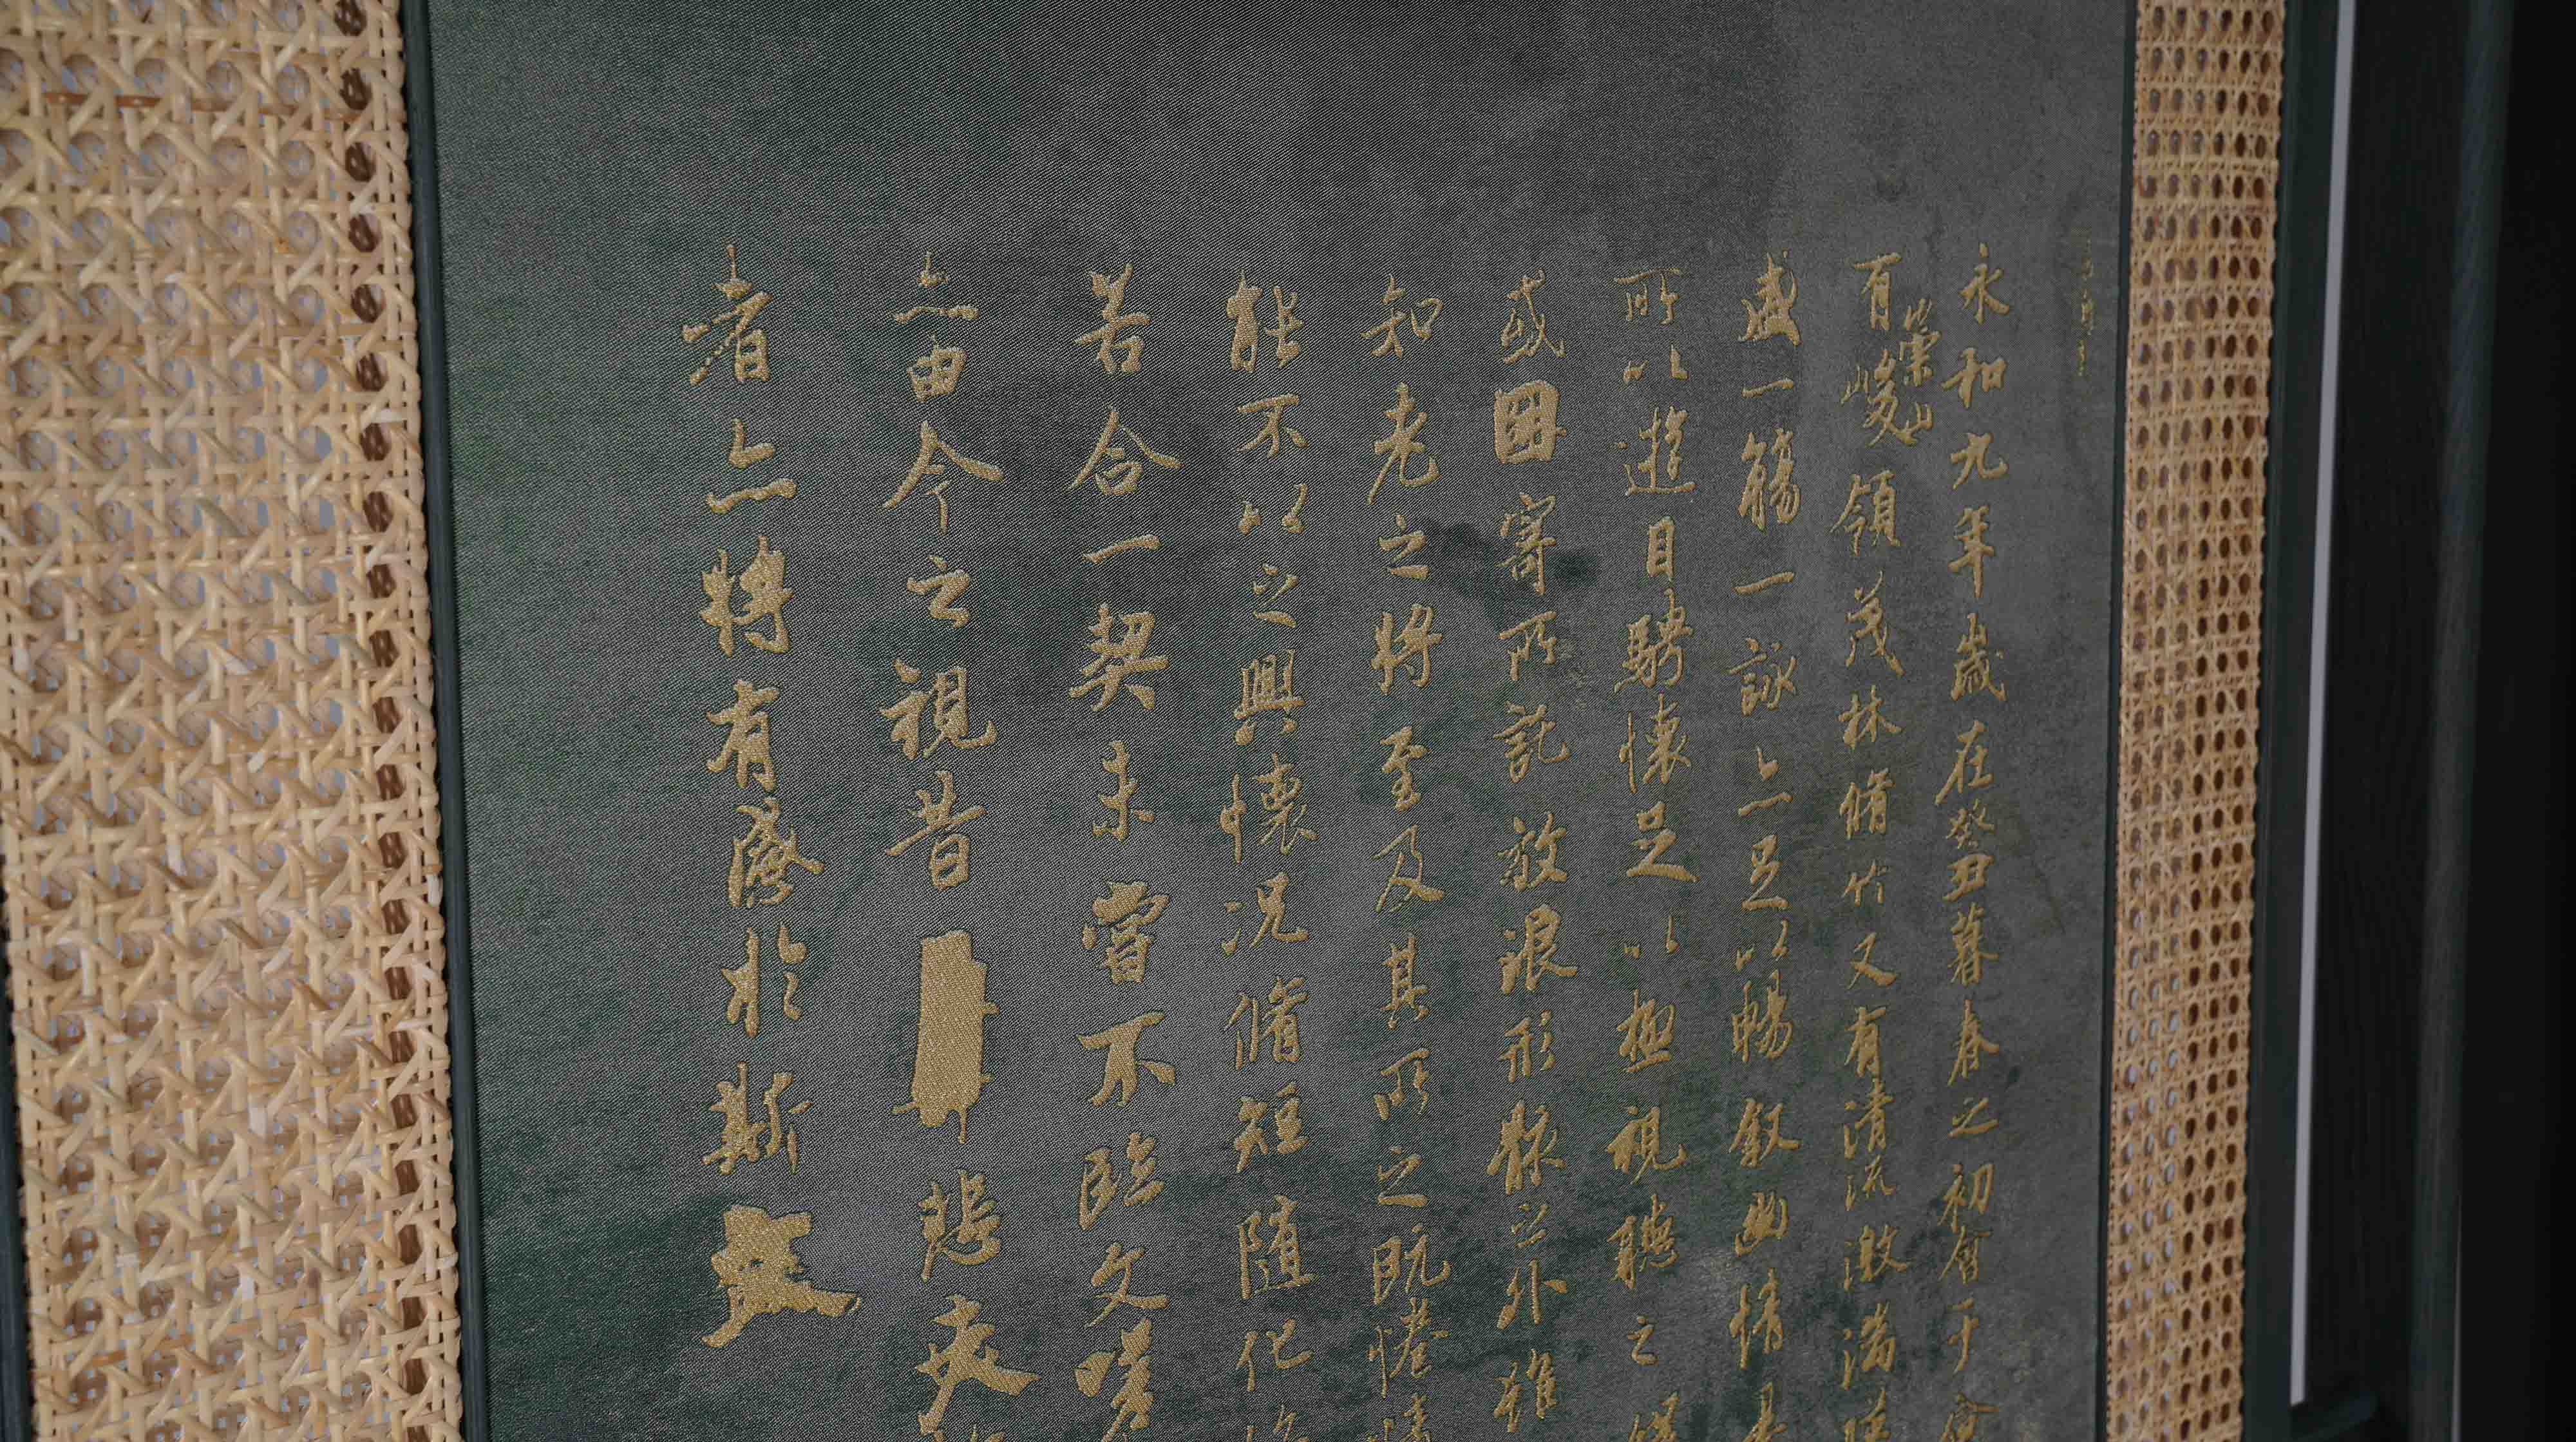 永和九年歲在癸丑暮春之初會于會
有崇山峻領茂林脩竹又有清流激湍暎
盛一觴一詠亦足以暢敘幽情是
所以遊目騁懷足以極視聽之娛
或因寄所託放浪形骸之外雖
知老之將至及其所之既惓情
能不以之興懷況脩短隨化
若合一契未嘗不臨文嗟
亦由今之視昔悲夫
者亦將有感於斯文